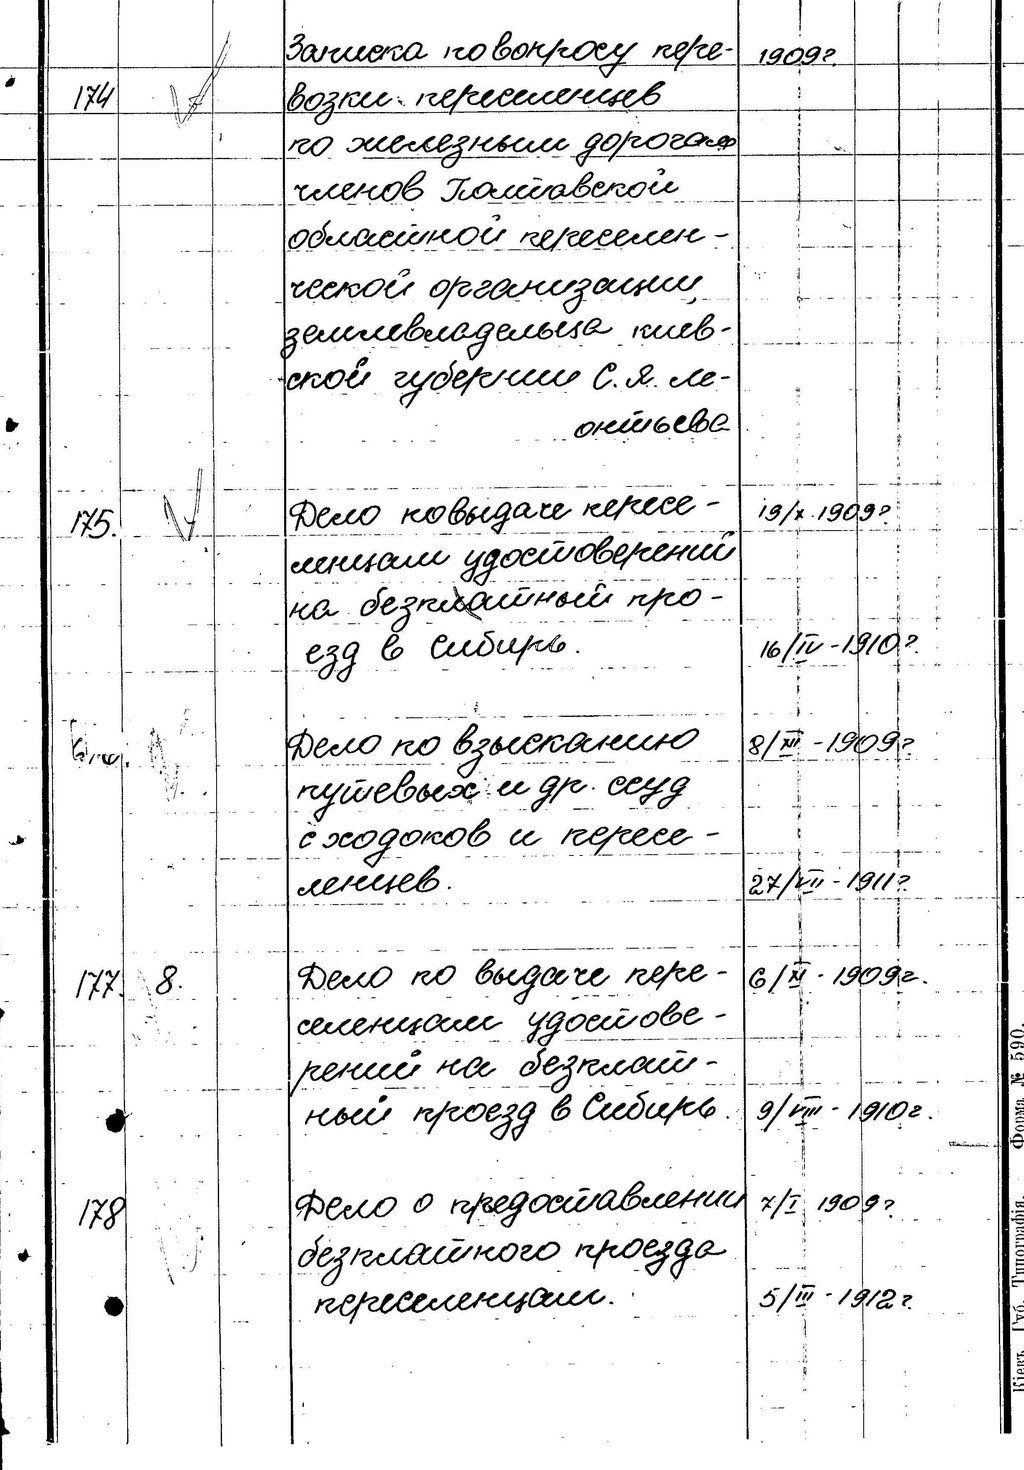 Записка по вопросу пере- 1909г.
174 возки переселенцев
по железным дорогам
членов Полтавской
областной переселен-
ческой организации,
землевладельца киев-
ской губернии С.Я. Ле-
онтьева
175. Дело по выдаче пересе- 19/X 1909г.
ленцам удостоверений
на безплатный про-
езд в Сибирь. 16/IV - 1910г.
Дело по взысканию 8/XII - 1909г.
путевых и др. ссуд
с ходоков и пересе-
ленцев. 27/VII - 1911г.
177. 8. Дело по выдаче пере- 6/XI - 1909г.
селенцам удостове-
рений на безплат-
ный проезд в Сибирь. 9/VIII - 1910г.
178 Дело о предоставлении 7/I 1909г.
безплатного проезда
переселенцам. 5/III - 1912г.
Кіевъ, Губ. Типографія. Форма № 590.